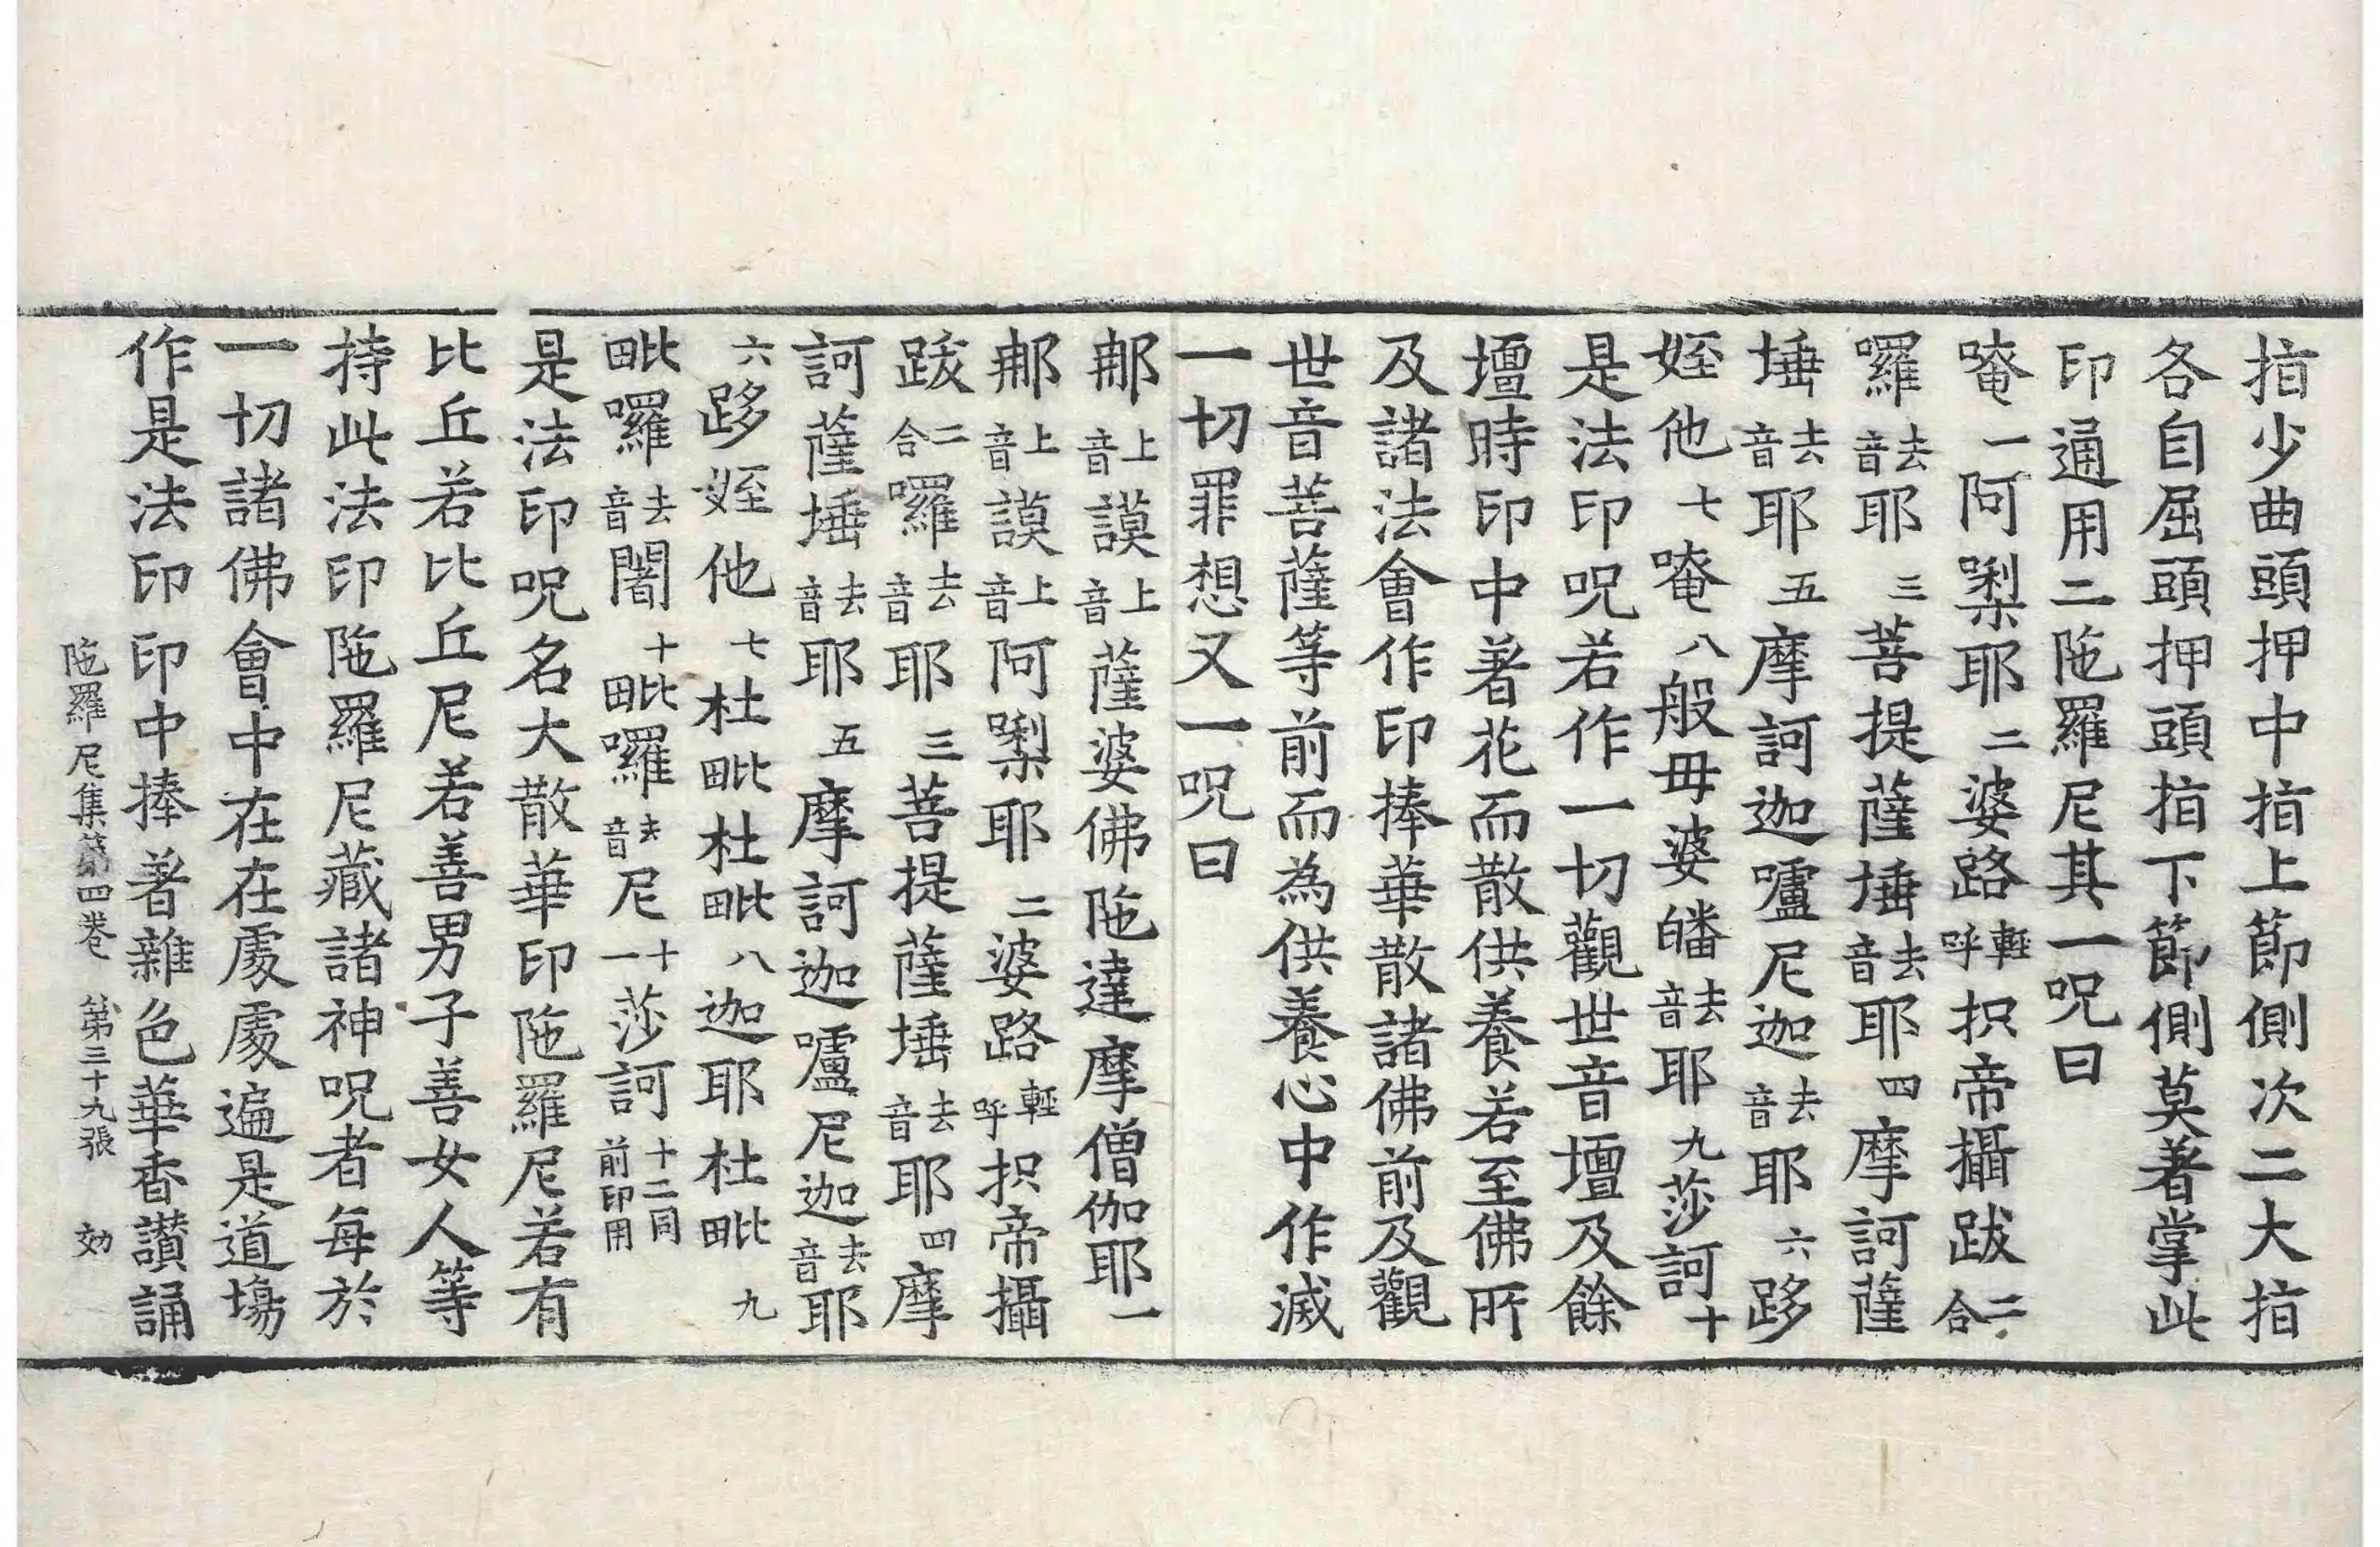 指少曲頭押中指上節側次二大指
各自屈頭押頭指下節側莫著掌此
印通用二陁羅尼其一呪曰
唵一阿唎耶二婆路輕呼抧帝攝跋二合
囉去音耶三菩提薩埵去音耶四摩訶薩
埵去音耶五摩訶迦嚧尼迦去音耶六跢
姪他七唵八般毋婆皤去音耶九莎訶十
是法印呪若作一切觀世音壇及餘
壇時印中著花而散供養若至佛所
及諸法會作印捧華散諸佛前及觀
世音菩薩等前而為供養心中作滅
一切罪想又一呪曰
那上音謨上音薩婆佛陁達摩僧伽耶一
那上音謨上音阿唎耶二婆路輕呼抧帝攝
跋二合囉去音耶三菩提薩埵去音耶四摩
訶薩埵去音耶五摩訶迦嚧尼迦去音耶
六跢姪他七杜毗杜毗八迦耶杜毗九
毗囉去音闍十毗囉去音尼十一莎訶十二同前印用
是法印呪名大散華印陁羅尼若有
比丘若比丘尼若善男子善女人等
持此法印陁羅尼藏諸神呪者每於
一切諸佛會中在在處處遍是道場
作是法印印中捧著雜色華香讃誦
陁羅尼集第四卷　第三十九張　効